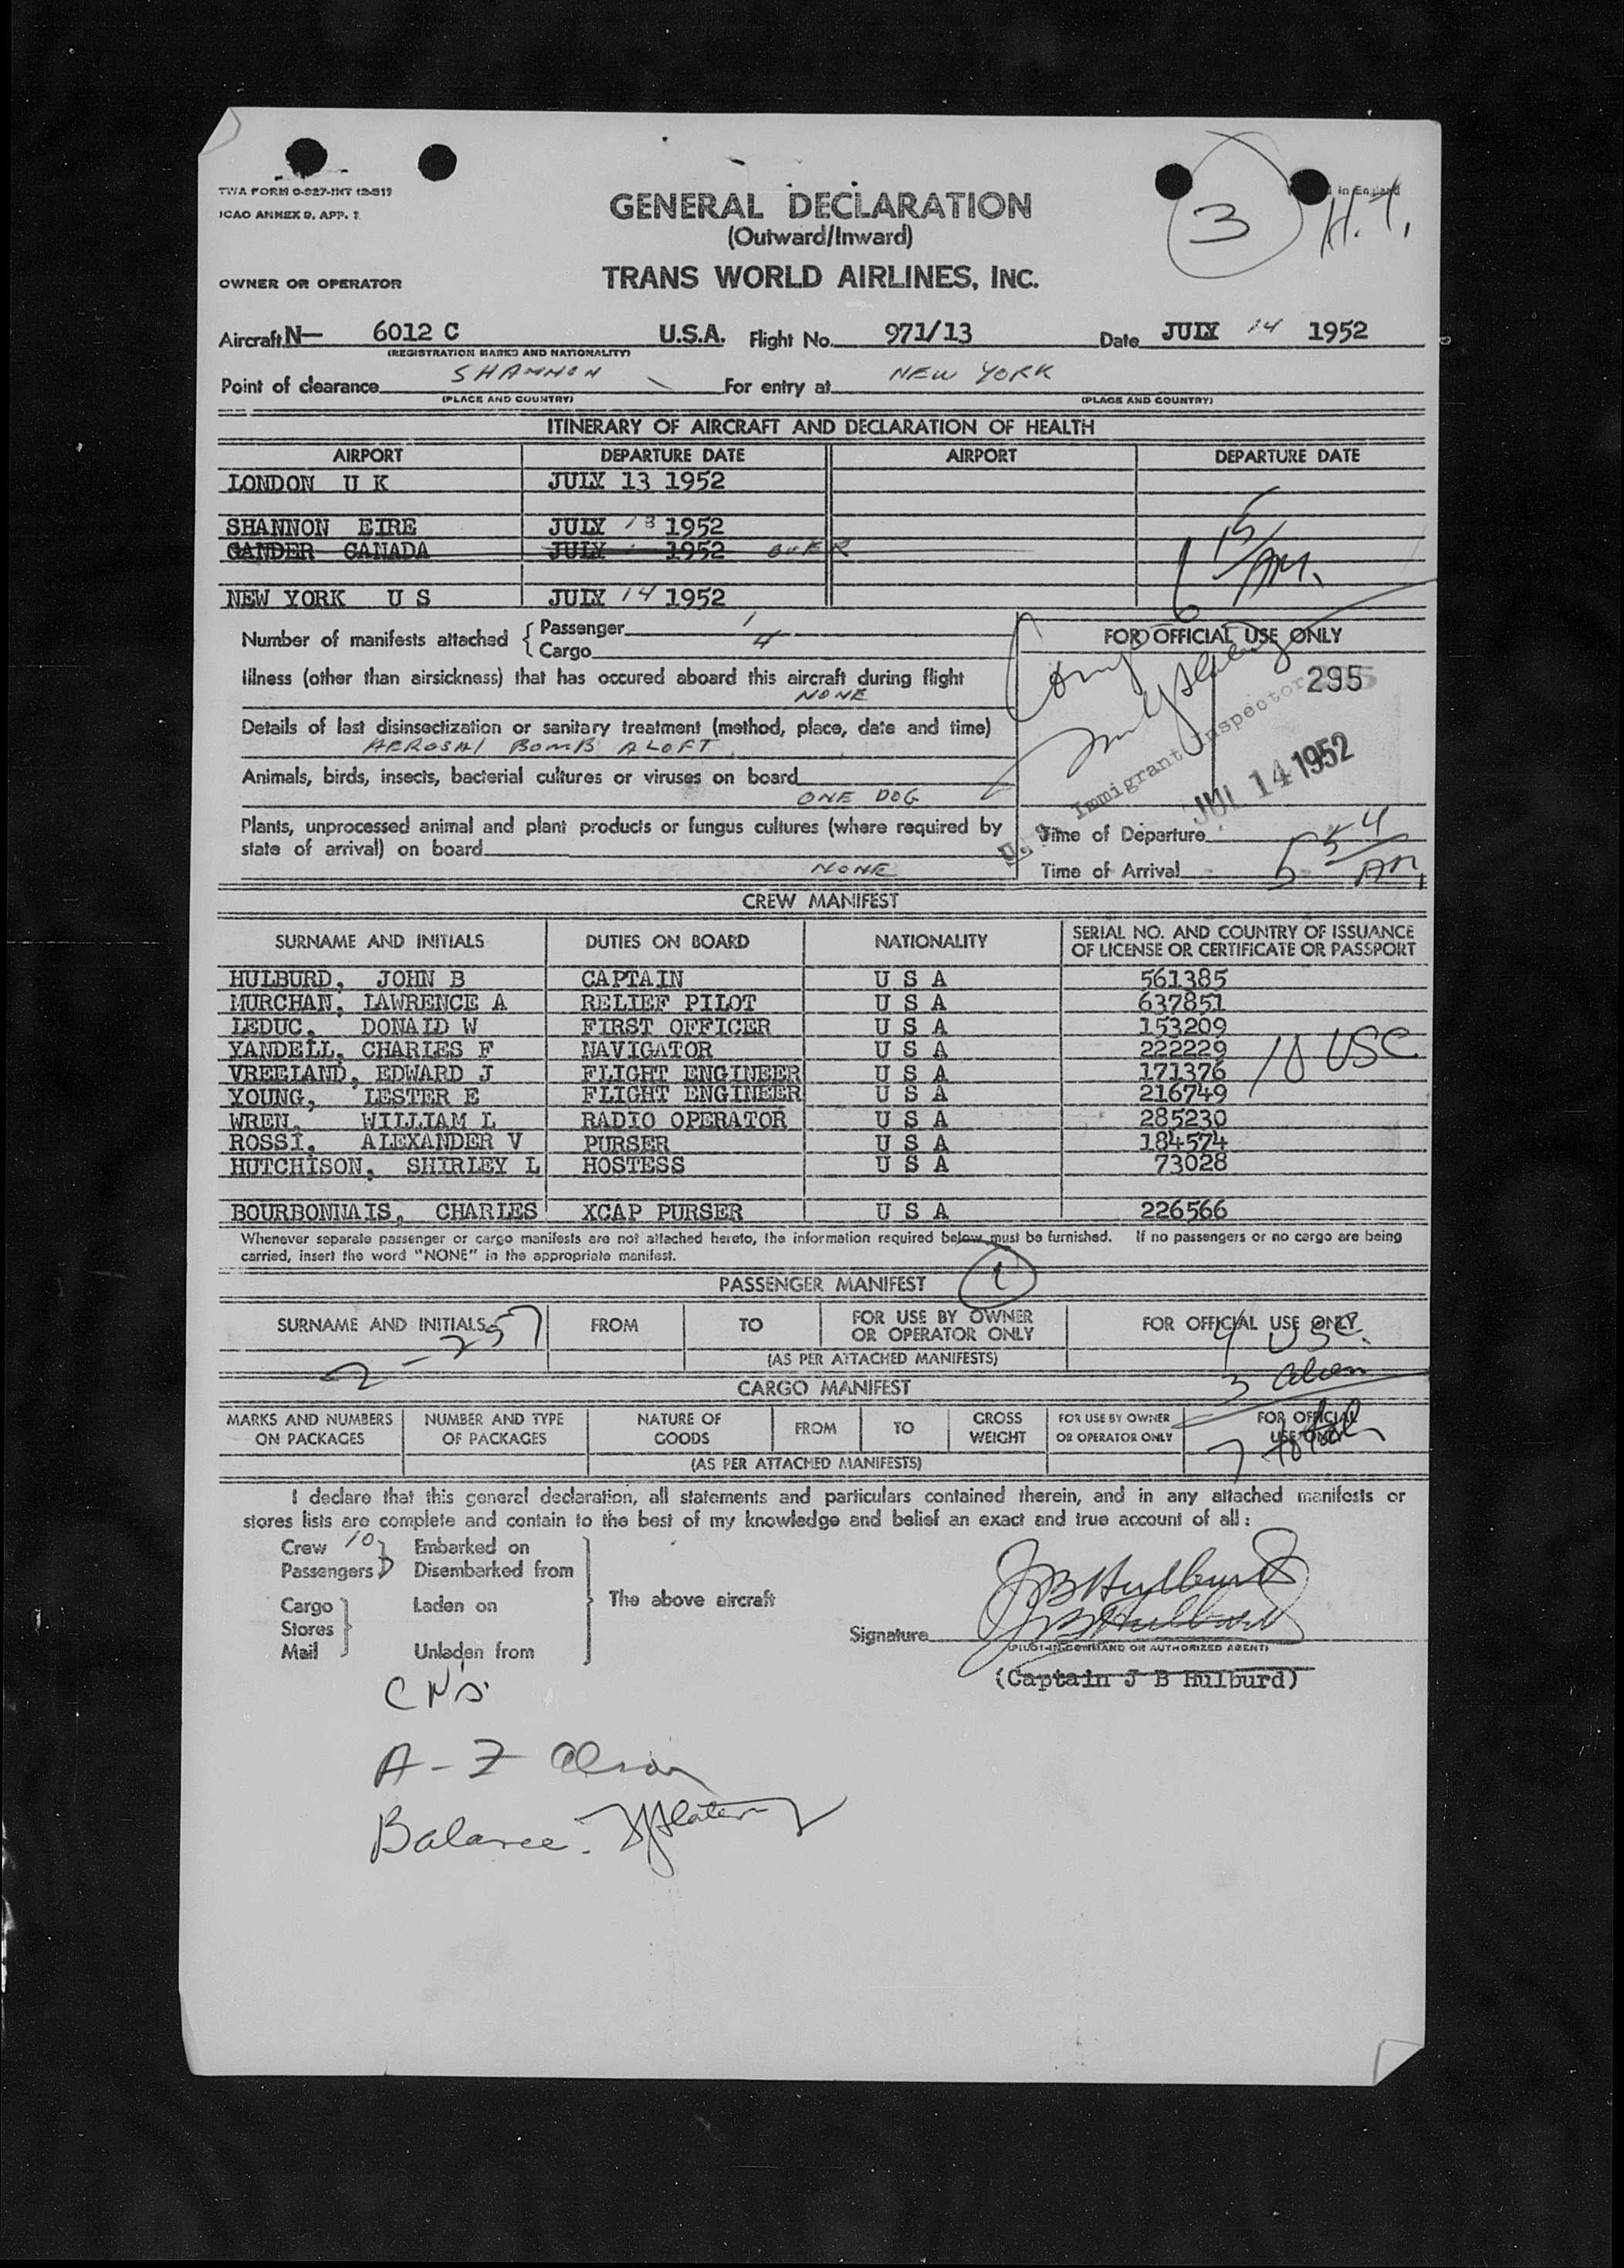 TWA FORM O-927-INT 12-51?
ICAO ANNEX 9, APP. 1
in England
3 H.T.
GENERAL DECLARATION
(Outward/Inward)
OWNER OR OPERATOR TRANS WORLD AIRLINES, INC.
Aircraft N— 6012 C U.S.A. Flight No. 971/13 Date JULY 14 1952
(REGISTRATION MARKS AND NATIONALITY)
Point of clearance SHANNON For entry at NEW YORK
(PLACE AND COUNTRY) (PLACE AND COUNTRY)
ITINERARY OF AIRCRAFT AND DECLARATION OF HEALTH
AIRPORT DEPARTURE DATE AIRPORT DEPARTURE DATE
LONDON U K JULY 13 1952
SHANNON EIRE JULY 13 1952
GANDER CANADA JULY 1952 OVER
NEW YORK U S JULY 14 1952
6 15/AM.
Number of manifests attached { Passenger 1
Cargo 4
FOR OFFICIAL USE ONLY
Illness (other than airsickness) that has occured aboard this aircraft during flight
NONE
295
Details of last disinsectization or sanitary treatment (method, place, date and time)
AEROSAL BOMB ALOFT
U.S. Immigrant Inspector
JUL 14 1952
Animals, birds, insects, bacterial cultures or viruses on board
ONE DOG
Plants, unprocessed animal and plant products or fungus cultures (where required by
state of arrival) on board
NONE
Time of Departure
Time of Arrival 5 54 AM
CREW MANIFEST
SURNAME AND INITIALS DUTIES ON BOARD NATIONALITY SERIAL NO. AND COUNTRY OF ISSUANCE
OF LICENSE OR CERTIFICATE OR PASSPORT
HULBURD, JOHN B CAPTAIN U S A 561385
MURCHAN, LAWRENCE A RELIEF PILOT U S A 637851
LEDUC, DONALD W FIRST OFFICER U S A 153209
YANDELL, CHARLES F NAVIGATOR U S A 222229 10 USC
VREELAND, EDWARD J FLIGHT ENGINEER U S A 171376
YOUNG, LESTER E FLIGHT ENGINEER U S A 216749
WREN, WILLIAM L RADIO OPERATOR U S A 285230
ROSSI, ALEXANDER V PURSER U S A 184574
HUTCHISON, SHIRLEY L HOSTESS U S A 73028
BOURBONNAIS, CHARLES XCAP PURSER U S A 226566
Whenever separate passenger or cargo manifests are not attached hereto, the information required below must be furnished. If no passengers or no cargo are being
carried, insert the word "NONE" in the appropriate manifest.
PASSENGER MANIFEST 1
SURNAME AND INITIALS FROM TO FOR USE BY OWNER
OR OPERATOR ONLY FOR OFFICIAL USE ONLY
2 - 257 4 USC.
(AS PER ATTACHED MANIFESTS)
3 alien
CARGO MANIFEST
MARKS AND NUMBERS
ON PACKAGES NUMBER AND TYPE
OF PACKAGES NATURE OF
GOODS FROM TO GROSS
WEIGHT FOR USE BY OWNER
OR OPERATOR ONLY FOR OFFICIAL
USE ONLY
7 total
(AS PER ATTACHED MANIFESTS)
I declare that this general declaration, all statements and particulars contained therein, and in any attached manifests or
stores lists are complete and contain to the best of my knowledge and belief an exact and true account of all:
Crew 10 Embarked on
Passengers Disembarked from
Cargo Laden on The above aircraft
Stores
Mail Unladen from
Signature JB Hulburd
JB Hulburd
(PILOT-IN-COMMAND OR AUTHORIZED AGENT)
(Captain J B Hulburd)
A - Z alien
Balance.